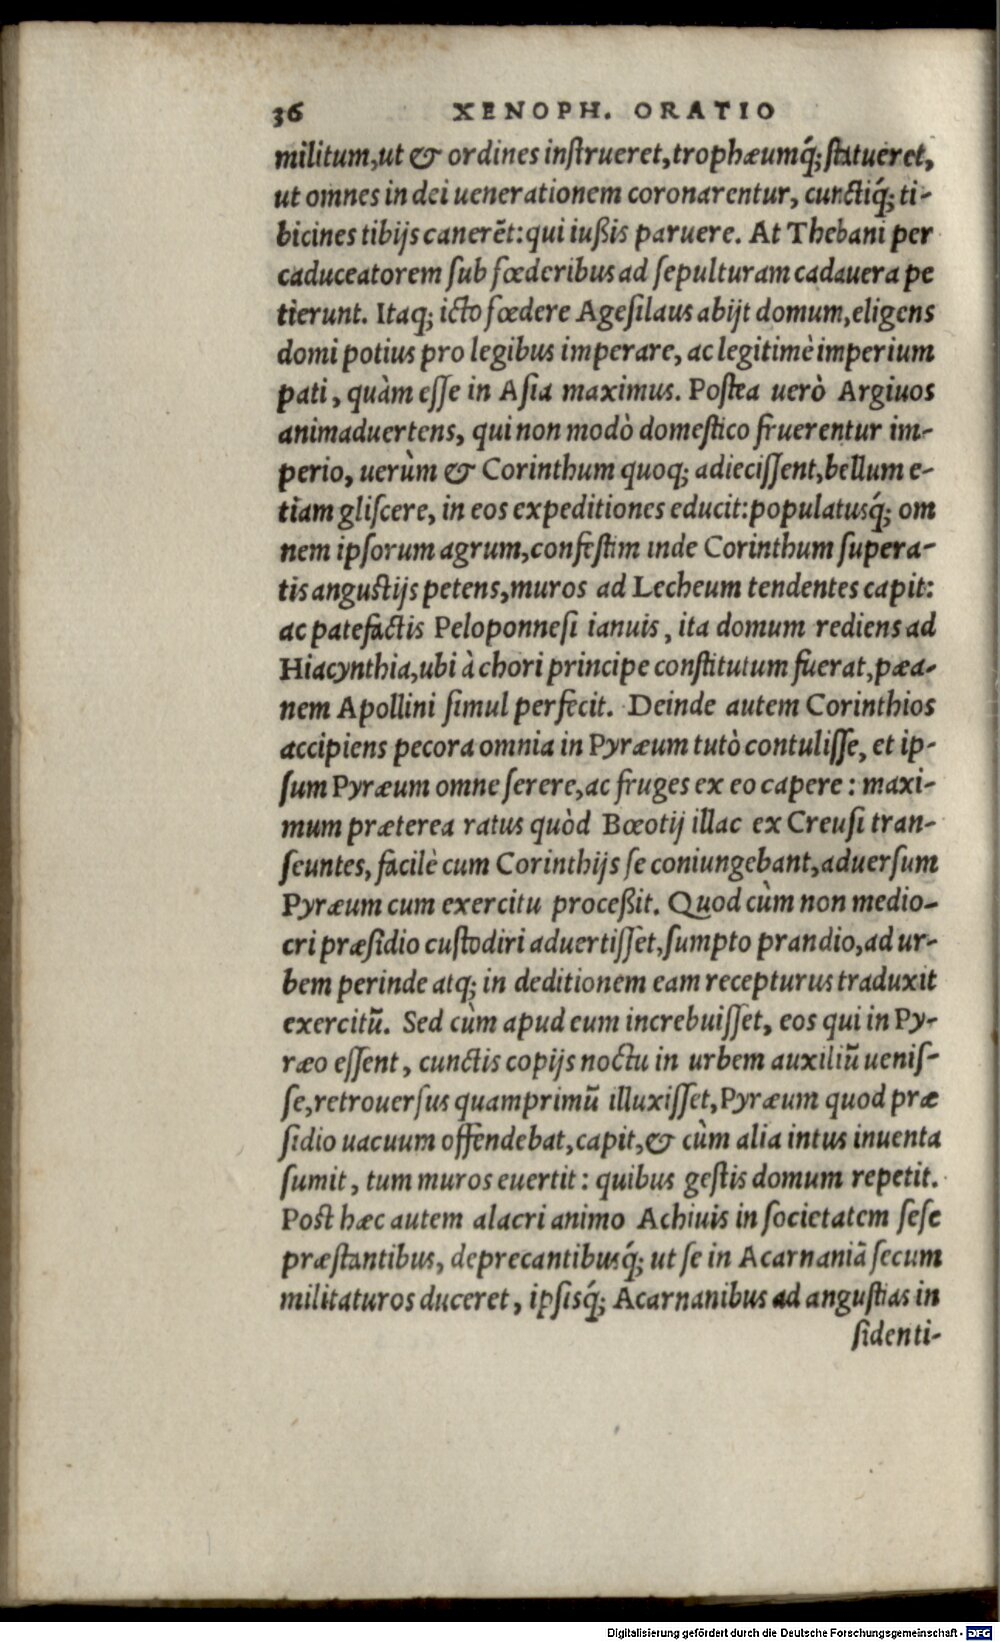 36 XENOPH. ORATIO
militum,ut & ordines instrueret,trophæumq́; statueret,
ut omnes in dei uenerationem coronarentur, cunctiq́; ti-
bicines tibijs canerẽt: qui iußis paruere. At Thebani per
caduceatorem sub fœderibus ad sepulturam cadauera pe
tierunt. Itaq; icto fœdere Agesilaus abijt domum,eligens
domi potius pro legibus imperare, ac legitimè imperium
pati, quàm esse in Asia maximus. Postea uerò Argiuos
animaduertens, qui non modò domestico fruerentur im-
perio, uerùm & Corinthum quoq; adiecissent,bellum e-
tiam gliscere, in eos expeditiones educit: populatusq́; om
nem ipsorum agrum,confestim inde Corinthum supera-
tis angustijs petens,muros ad Lecheum tendentes capit:
ac patefactis Peloponnesi ianuis, ita domum rediens ad
Hiacynthia,ubi à chori principe constitutum fuerat,pæa-
nem Apollini simul perfecit. Deinde autem Corinthios
accipiens pecora omnia in Pyræum tutò contulisse, et ip-
sum Pyræum omne serere,ac fruges ex eo capere: maxi-
mum præterea ratus quòd Bœotij illac ex Creusi tran-
seuntes, facilè cum Corinthijs se coniungebant,aduersum
Pyræum cum exercitu proceßit. Quod cùm non medio-
cri præsidio custodiri aduertisset,sumpto prandio,ad ur-
bem perinde atq; in deditionem eam recepturus traduxit
exercitũ. Sed cùm apud eum increbuisset, eos qui in Py-
ræo essent, cunctis copijs noctu in urbem auxiliũ uenis-
se,retrouersus quamprimũ illuxisset,Pyræum quod præ
sidio uacuum offendebat,capit,& cùm alia intus inuenta
sumit, tum muros euertit: quibus gestis domum repetit.
Post hæc autem alacri animo Achiuis in societatem sese
præstantibus, deprecantibusq́; ut se in Acarnaniã secum
militaturos duceret, ipsisq́; Acarnanibus ad angustias in
sidenti-
Digitalisierung gefördert durch die Deutsche Forschungsgemeinschaft - DFG